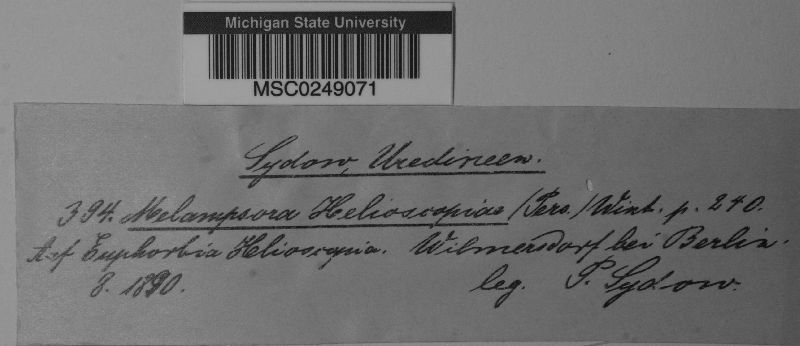 Michigan State University
MSC0249071
Sydow, Uredineen.
394. Melampsora Helioscopiae (Pers.) Wint. p. 240.
Auf Euphorbia Helioscopia. Wilmersdorf bei Berlin.
8. 1890. leg. P. Sydow.